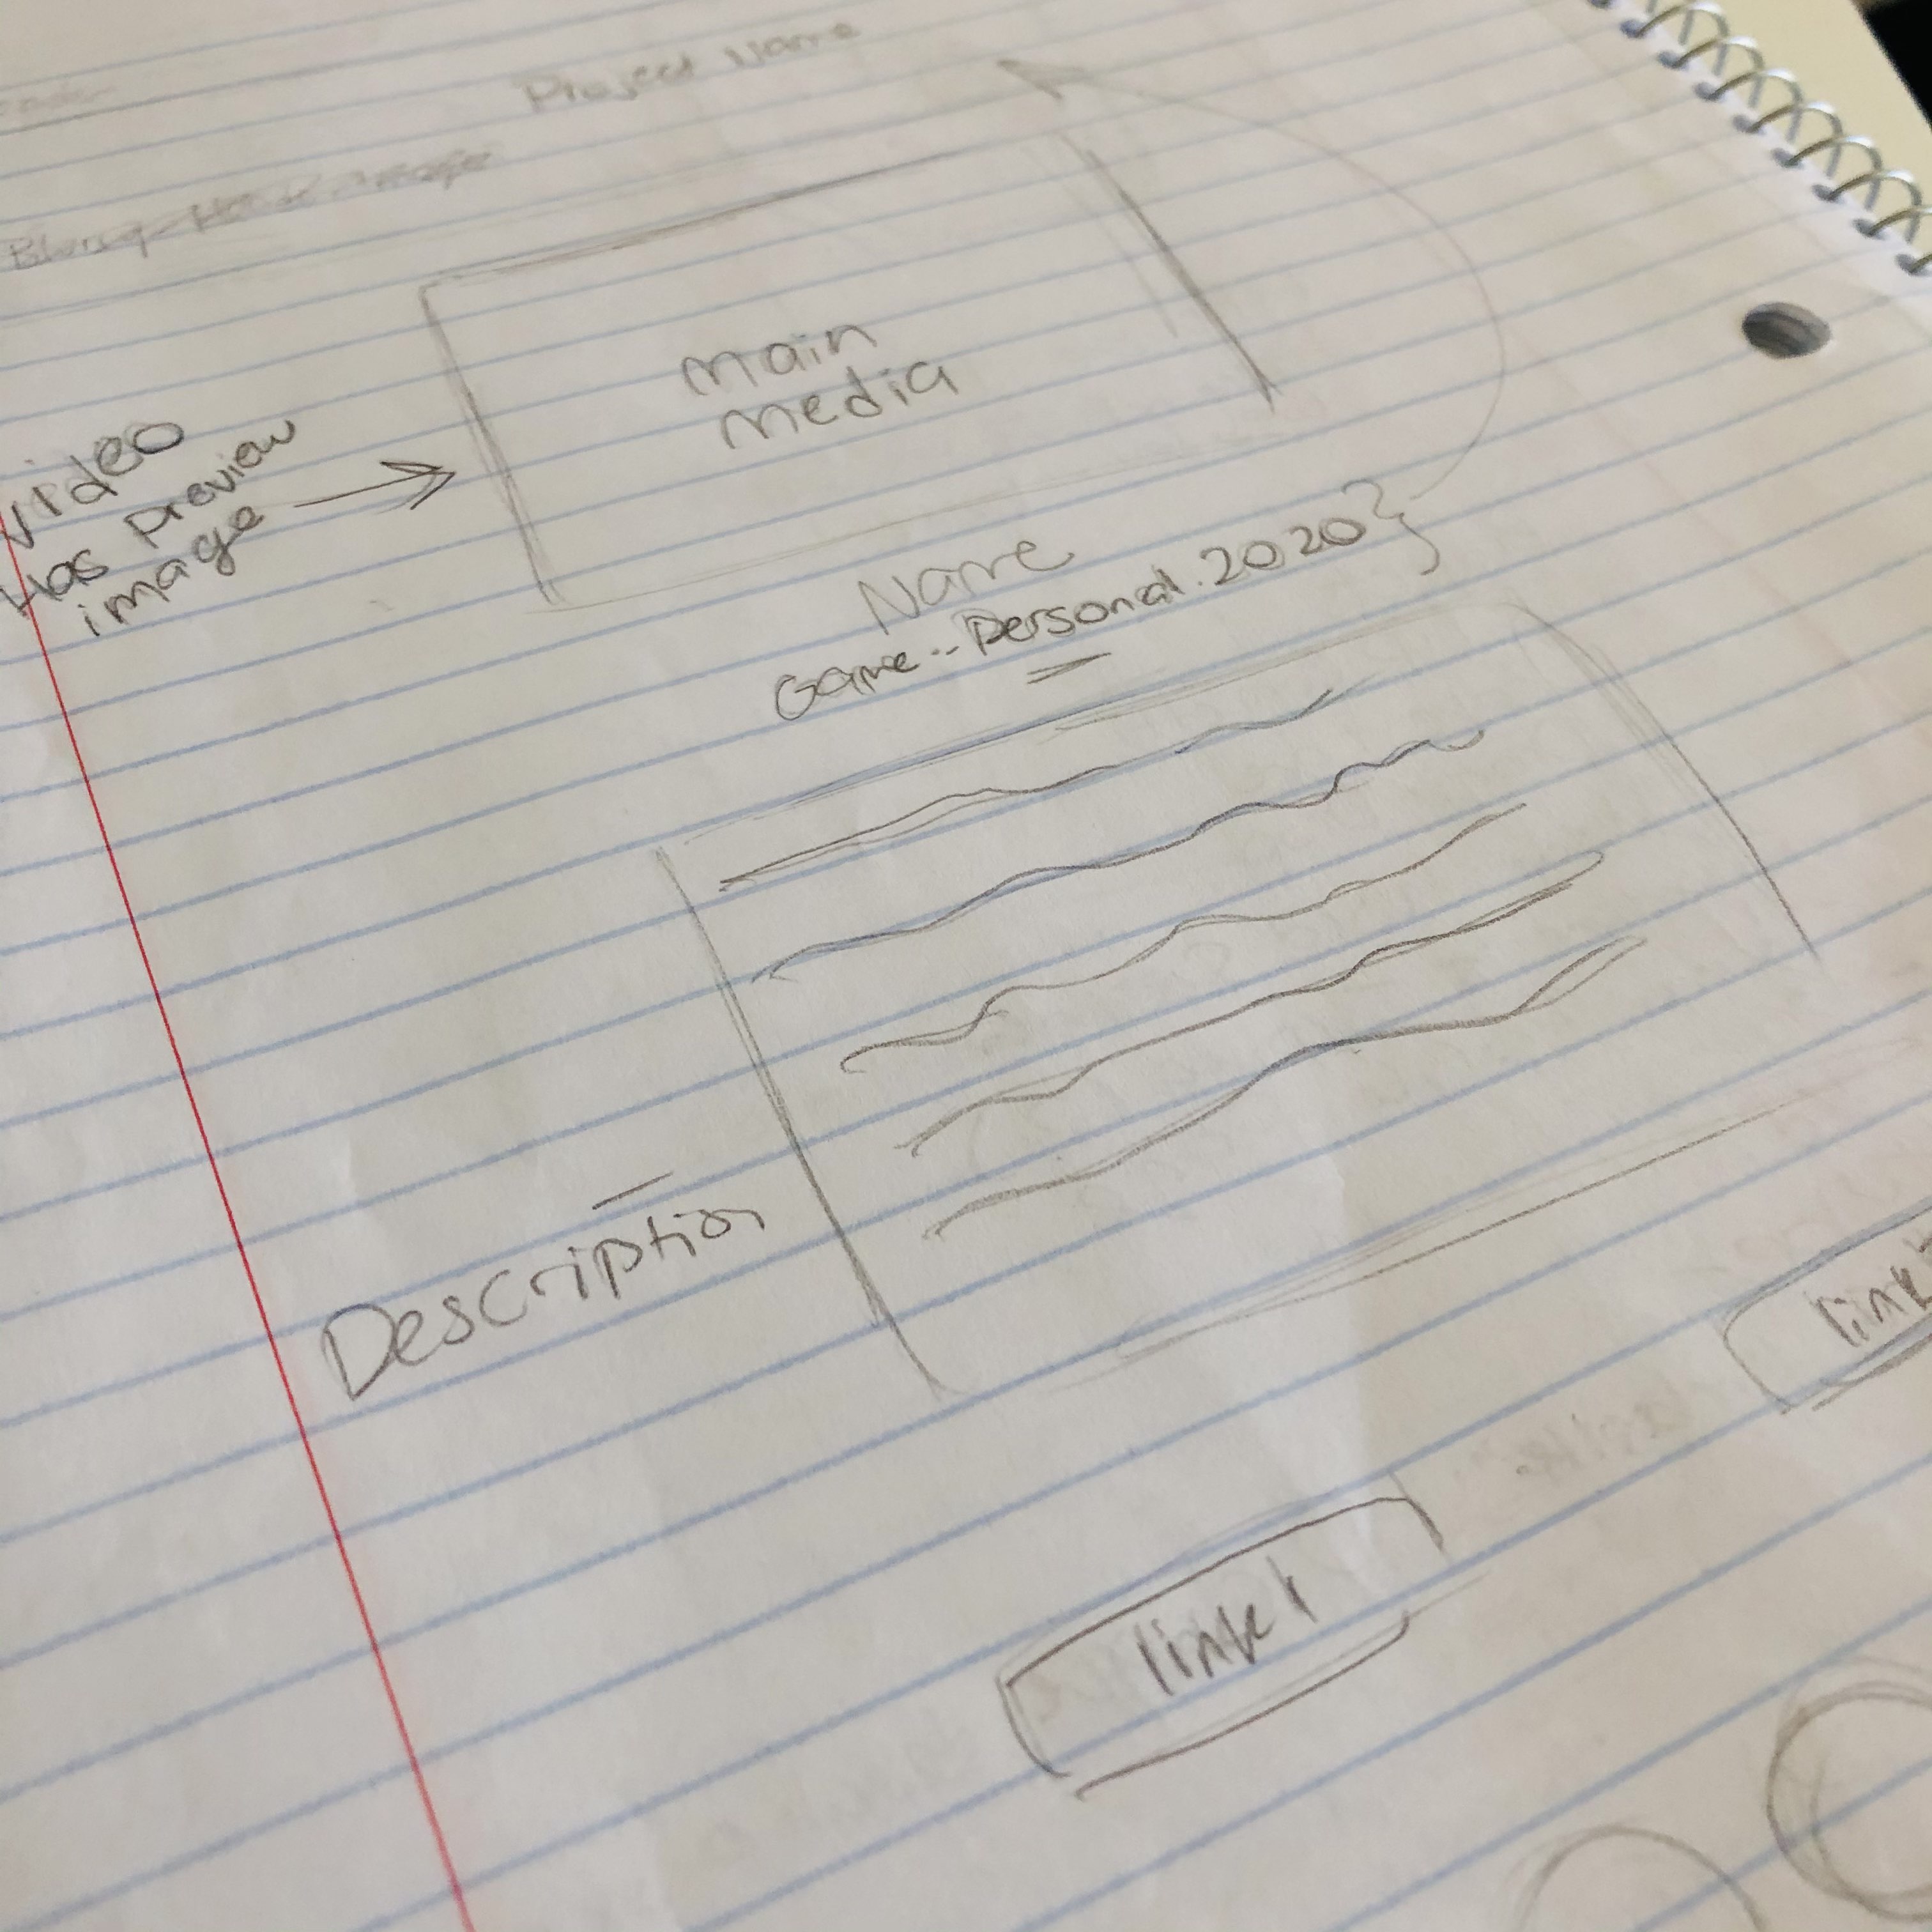 Project Name
main
media
video
Has preview
image
Name
Game -- Personal. 2020}
Description
link
link 1